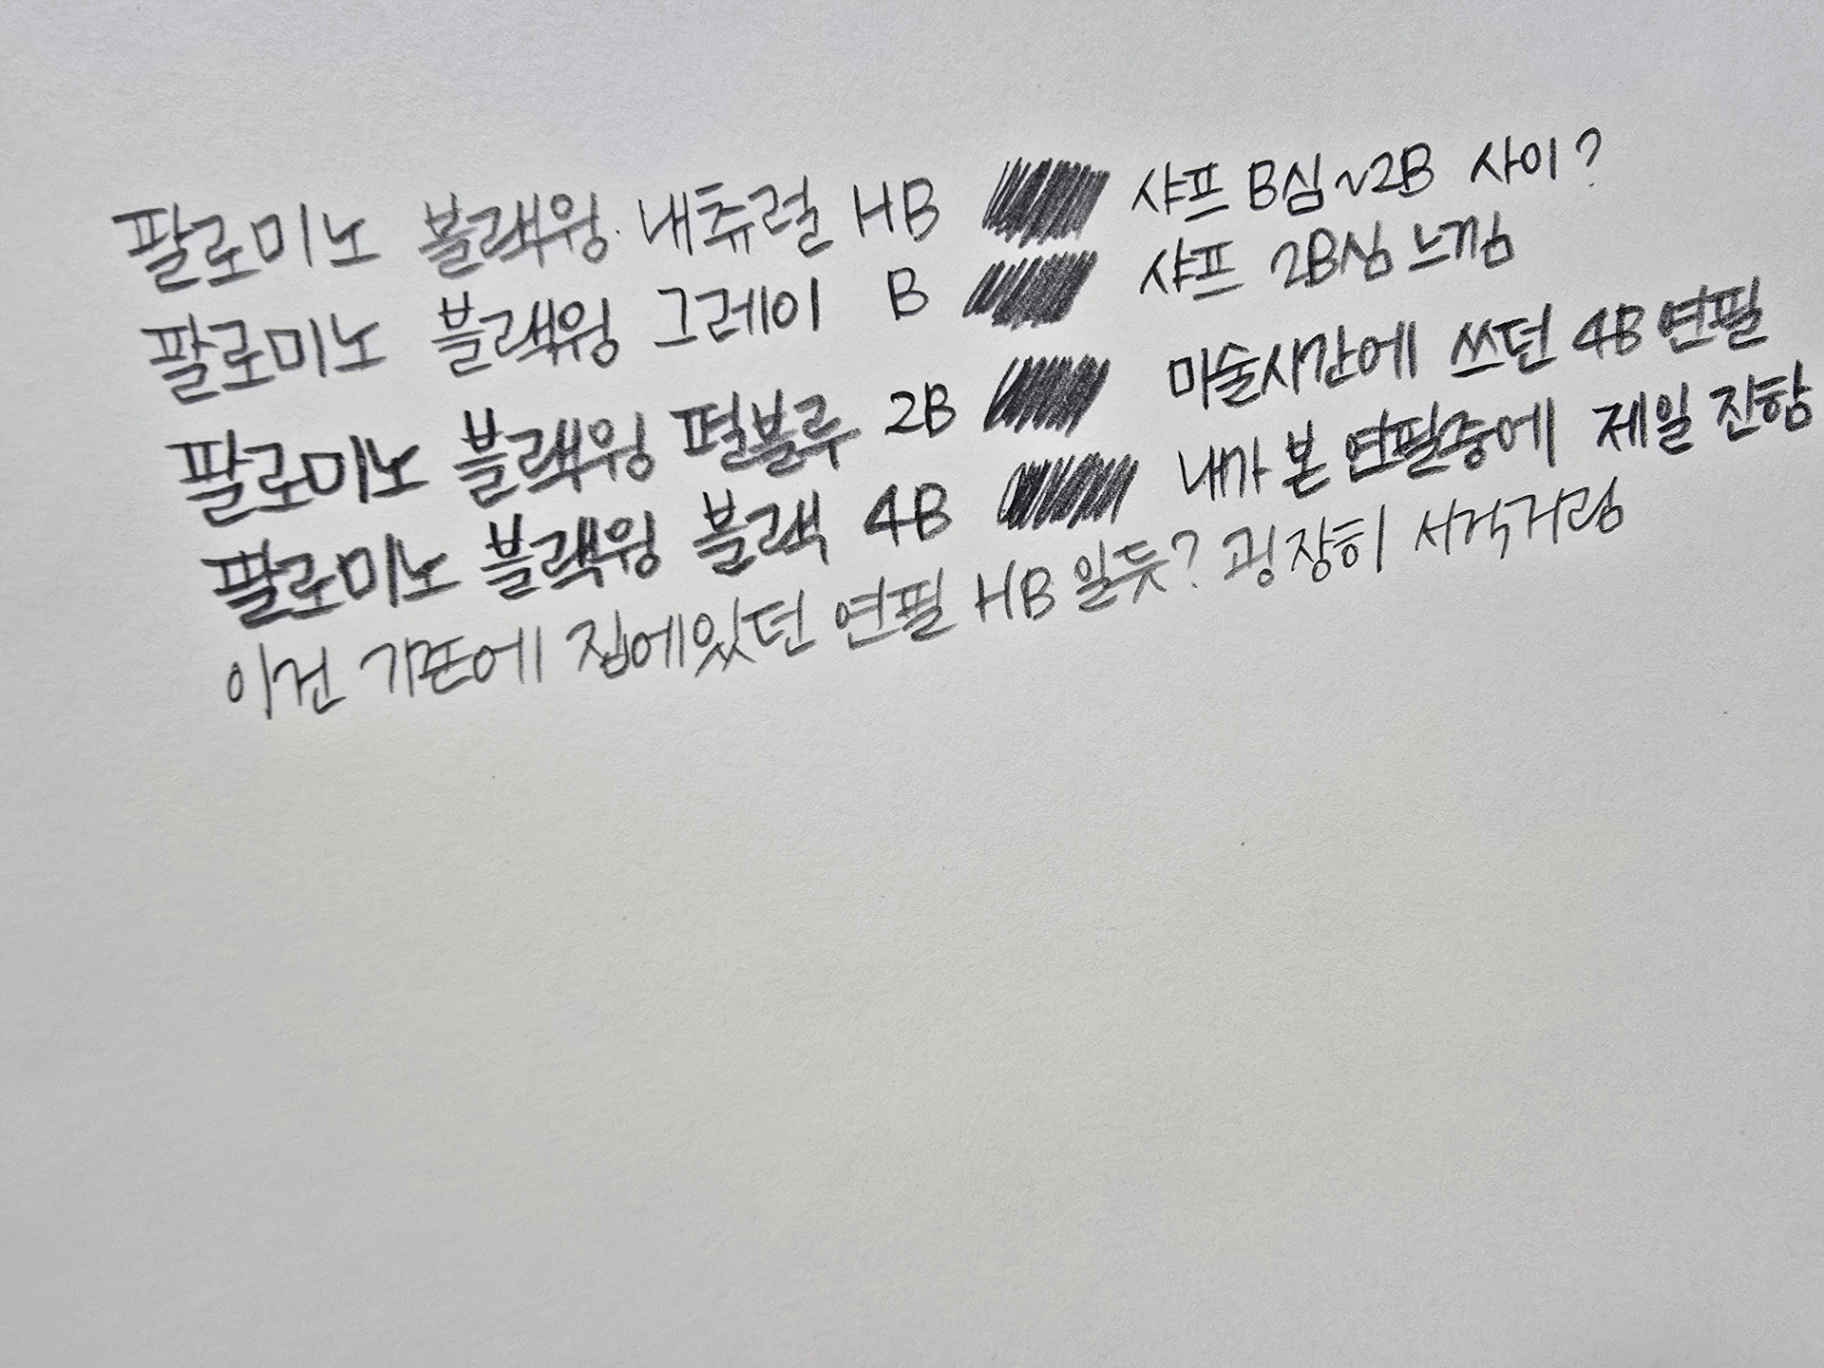 팔로미노 블랙윙 내츄럴 HB 샤프 B심~2B 사이?
팔로미노 블랙윙 그레이 B 샤프 2B심 느낌
팔로미노 블랙윙 펄블루 2B 미술시간에 쓰던 4B 연필
팔로미노 블랙윙 블랙 4B 내가 본 연필중에 제일 진함
이건 기존에 집에있던 연필 HB 일듯? 굉장히 서걱거림